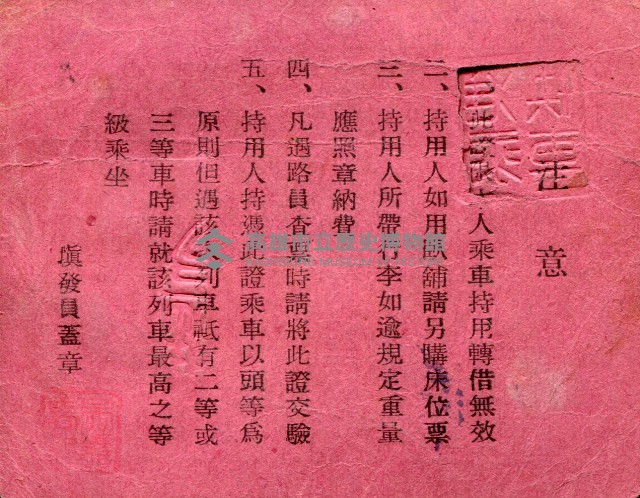 注意
一、此證限本人乘車持用轉借無效
二、持用人如用臥舖請另購床位票
三、持用人所帶行李如逾規定重量
應照章納費
四、凡遇路員查驗時請將此證交驗
五、持用人持憑此證乘車以頭等為
原則但遇該列車祇有二等或
三等車時請就該列車最高之等
級乘坐
填發員蓋章
高雄市立歷史博物館